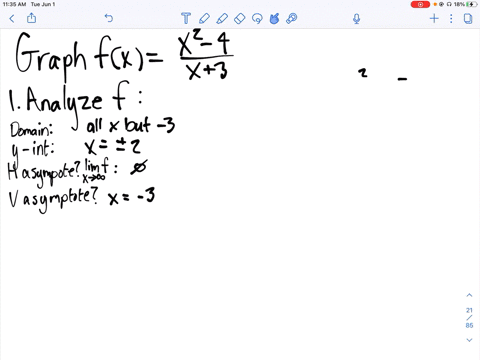 11:35 AM Tue Jun 1
18%
Graph f(x) = x²-4 / x+3
1. Analyze f :
Domain: all x but -3
y-int: x = ±2
H asympote? lim x→∞ f : ∅
V asymptote? x = -3
21
/
85